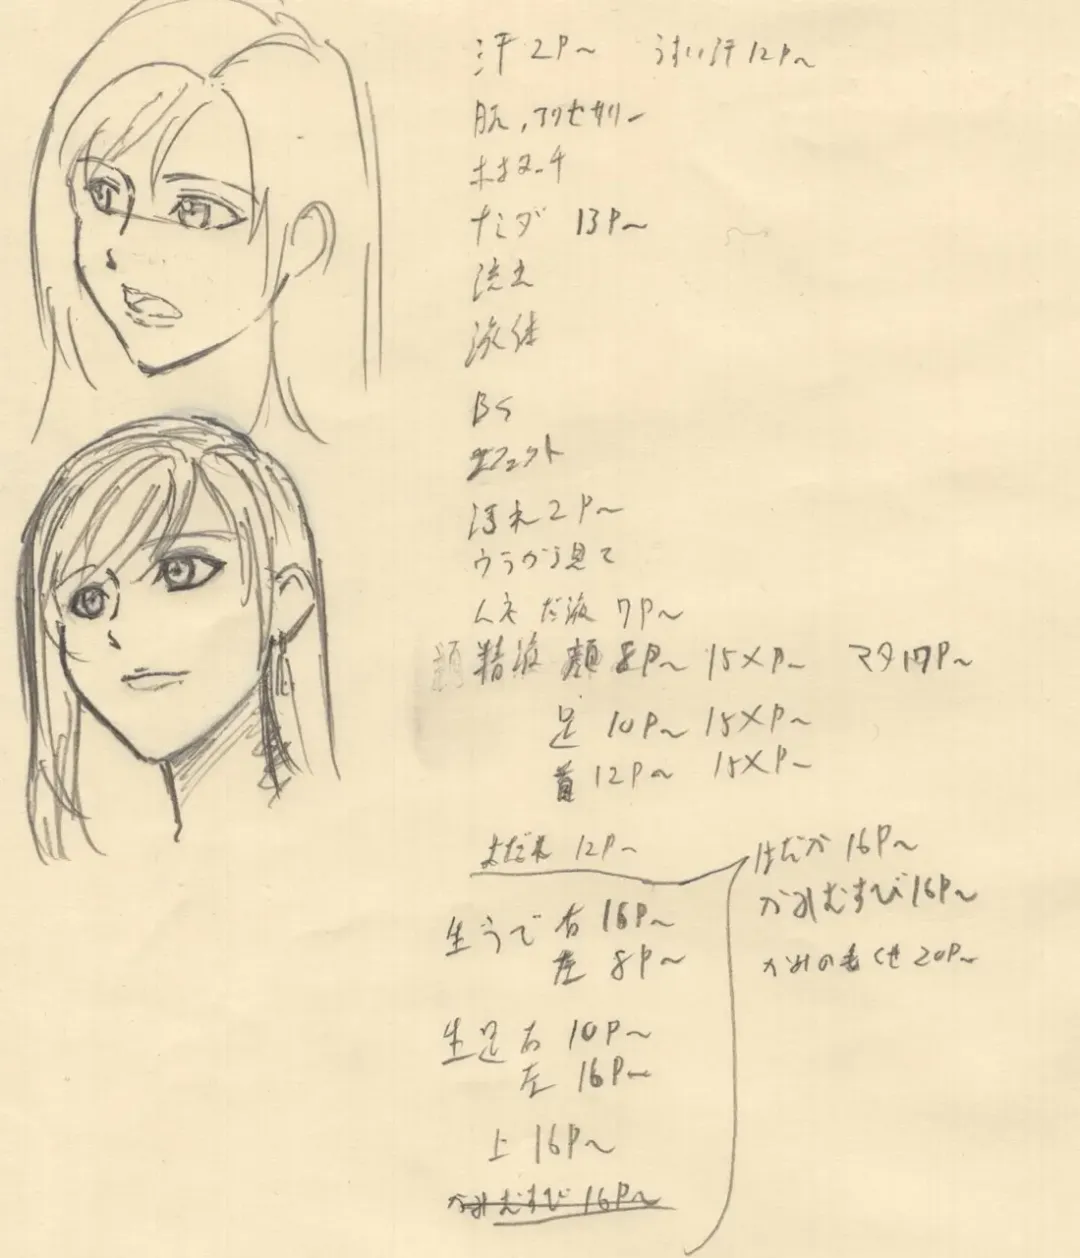 汗 2P～　うすい汗 12P～
肌,アクセサリー
ホオタッチ
ナミダ 13P～
流土
液体
BG
エフェクト
汚れ 2P～
ウラから見て
ムネ だ液 7P～
精液 顔 8P～ 15×P～ マタ17P～
足 10P～ 15×P～
首 12P～ 15×P～
よだれ 12P～
はだか 16P～
かみむすび 16P～
かみのもくせ 20P～
生うで 右 16P～
左 8P～
生足 右 10P～
左 16P～
上 16P～
かみむすび 16P～